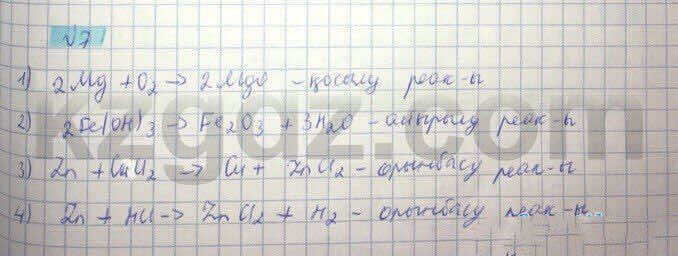 √7
1) 2Mg + O₂ → 2MgO - қосылу реак-ы
2) 2Fe(OH)₃ → Fe₂O₃ + 3H₂O - айырылу реак-ы
3) Zn + CuCl₂ → Cu + ZnCl₂ - орынбасу реак-ы
4) Zn + HCl → ZnCl₂ + H₂ - орынбасу реак-ы
kzgdz.com